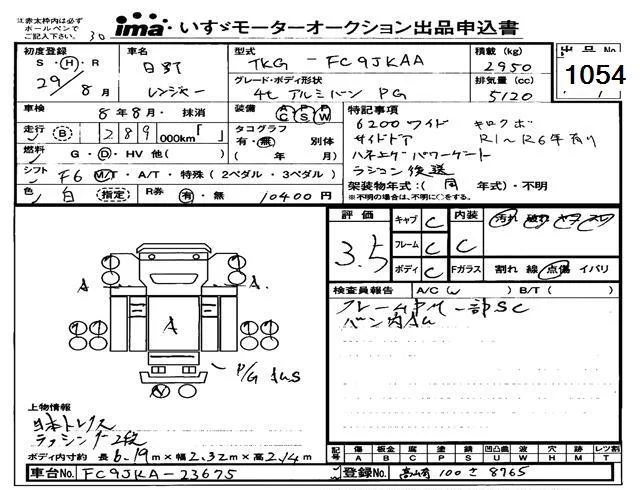 注:赤太枠内は必ず
ボールペンで
ご記入下さい。
30
ima いすゞモーターオークション出品申込書
初度登録
S・H・R
29/8月
車名
日野
レンジャー
型式
TKG-FC9JKAA
グレード・ボディ形状
4t アルミバン PG
積載 (kg)
2950
排気量 (cc)
5120
出品No.
1054
車検 8年8月・抹消
装備 AC PS PW
走行 B 1289 000km「 」
タコグラフ
有・無 別体
( 年 月)
燃料 G・D・HV 他( )
シフト F6 M/T・A/T・特殊(2ペダル・3ペダル)
色 白 (指定) R券 有・無 10400円
特記事項
6200ワイド キロクボ
サイドドア R1~R6年有り
ハネエダパワーゲート
ラジコン後送
架装物年式:( 同 年式)・不明
※不明の場合は、不明に〇をする。
評価
3.5
キャブ C
フレーム C
ボディ C
内装
C
Fガラス
汚れ 破れ ヤケ スレ
割れ 線 点傷 イバリ
検査員報告 A/C( ) B/T( )
フレームPM 一部SC
バン内AU
A
A
A
P/G
上物情報
日本トレクス
ラッシング2段
ボディ内寸約 長6.19m×幅2.32m×高2.14m
記号 傷 A 板金 B 腐 C 塗 P 錆 S 凹凸曲 U 波 W 穴 H 跡 M レツ割 T
車台No. FC9JKA-23675
登録No. 高山有 100 さ 8765